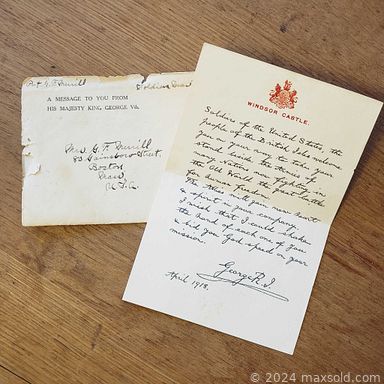 G. F. Merrill
Soldiers
A MESSAGE TO YOU FROM
HIS MAJESTY KING, GEORGE Vth.
Mrs G. F. Merrill
83 Gainsboro Street,
Boston
Mass,
U.S.A.
WINDSOR CASTLE.
Soldiers of the United States, the
people of the British Isles welcome
you on your way to take your
stand beside the Armies of
many Nations now fighting in
the Old World the great battle
for human freedom.
The Allies will gain new heart
& spirit in your company.
I wish that I could shake
the hand of each one of you
& bid you God speed on your
mission.
George R.I.
April 1918.
© 2024 maxsold.com